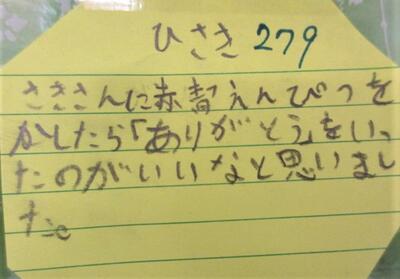 ひさき 279
さきさんに赤青えんぴつを
かしたら「ありがとう」をいっ
たのがいいなと思いまし
た。